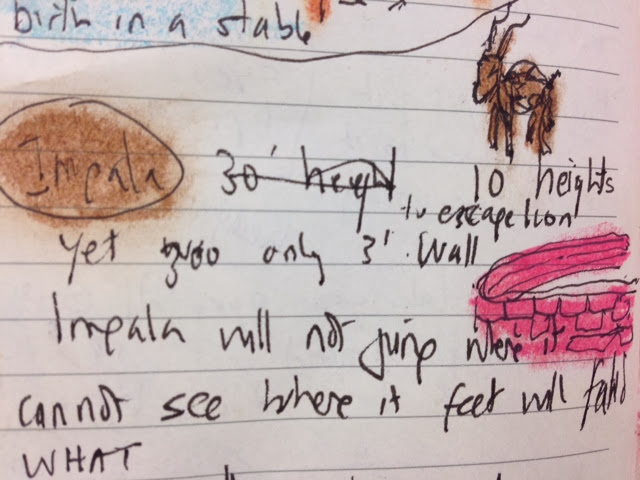 birth in a stable
Impala 30' height 10 heights
to escape lion
yet zoo only 3' wall
Impala will not jump where it
cannot see where it feet will fall
WHAT